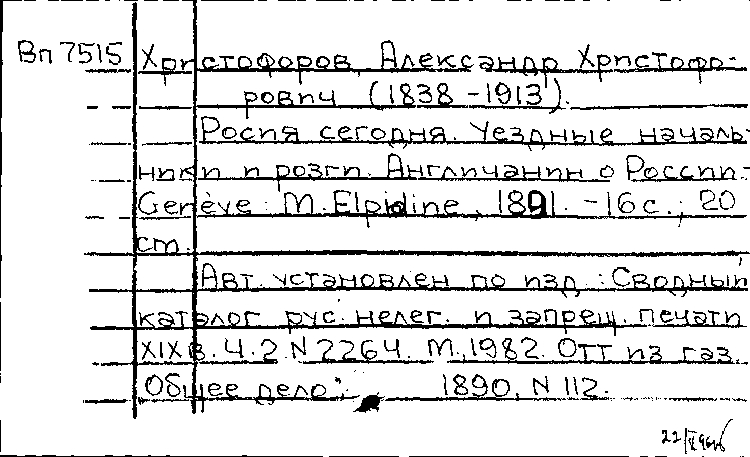 Вп 7515 Христофоров, Александр Христофо-
рович (1838 - 1913).
Росия сегодня. Уездные началь-
ники и розги. Англичанин о России. -
Genève: M. Elpidine, 1891. - 16 с.; 20
см.
Авт. установлен по изд.: Сводный
каталог рус. нелег. и запрещ. печати
XIX в. Ч. 2. N 2264. М., 1982. Отт из газ.
"Общее дело": 1890, N 112.